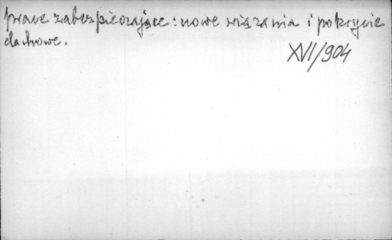 prace zabezpieczające: nowe wiązania i pokrycie
dachowe.
XVI/904